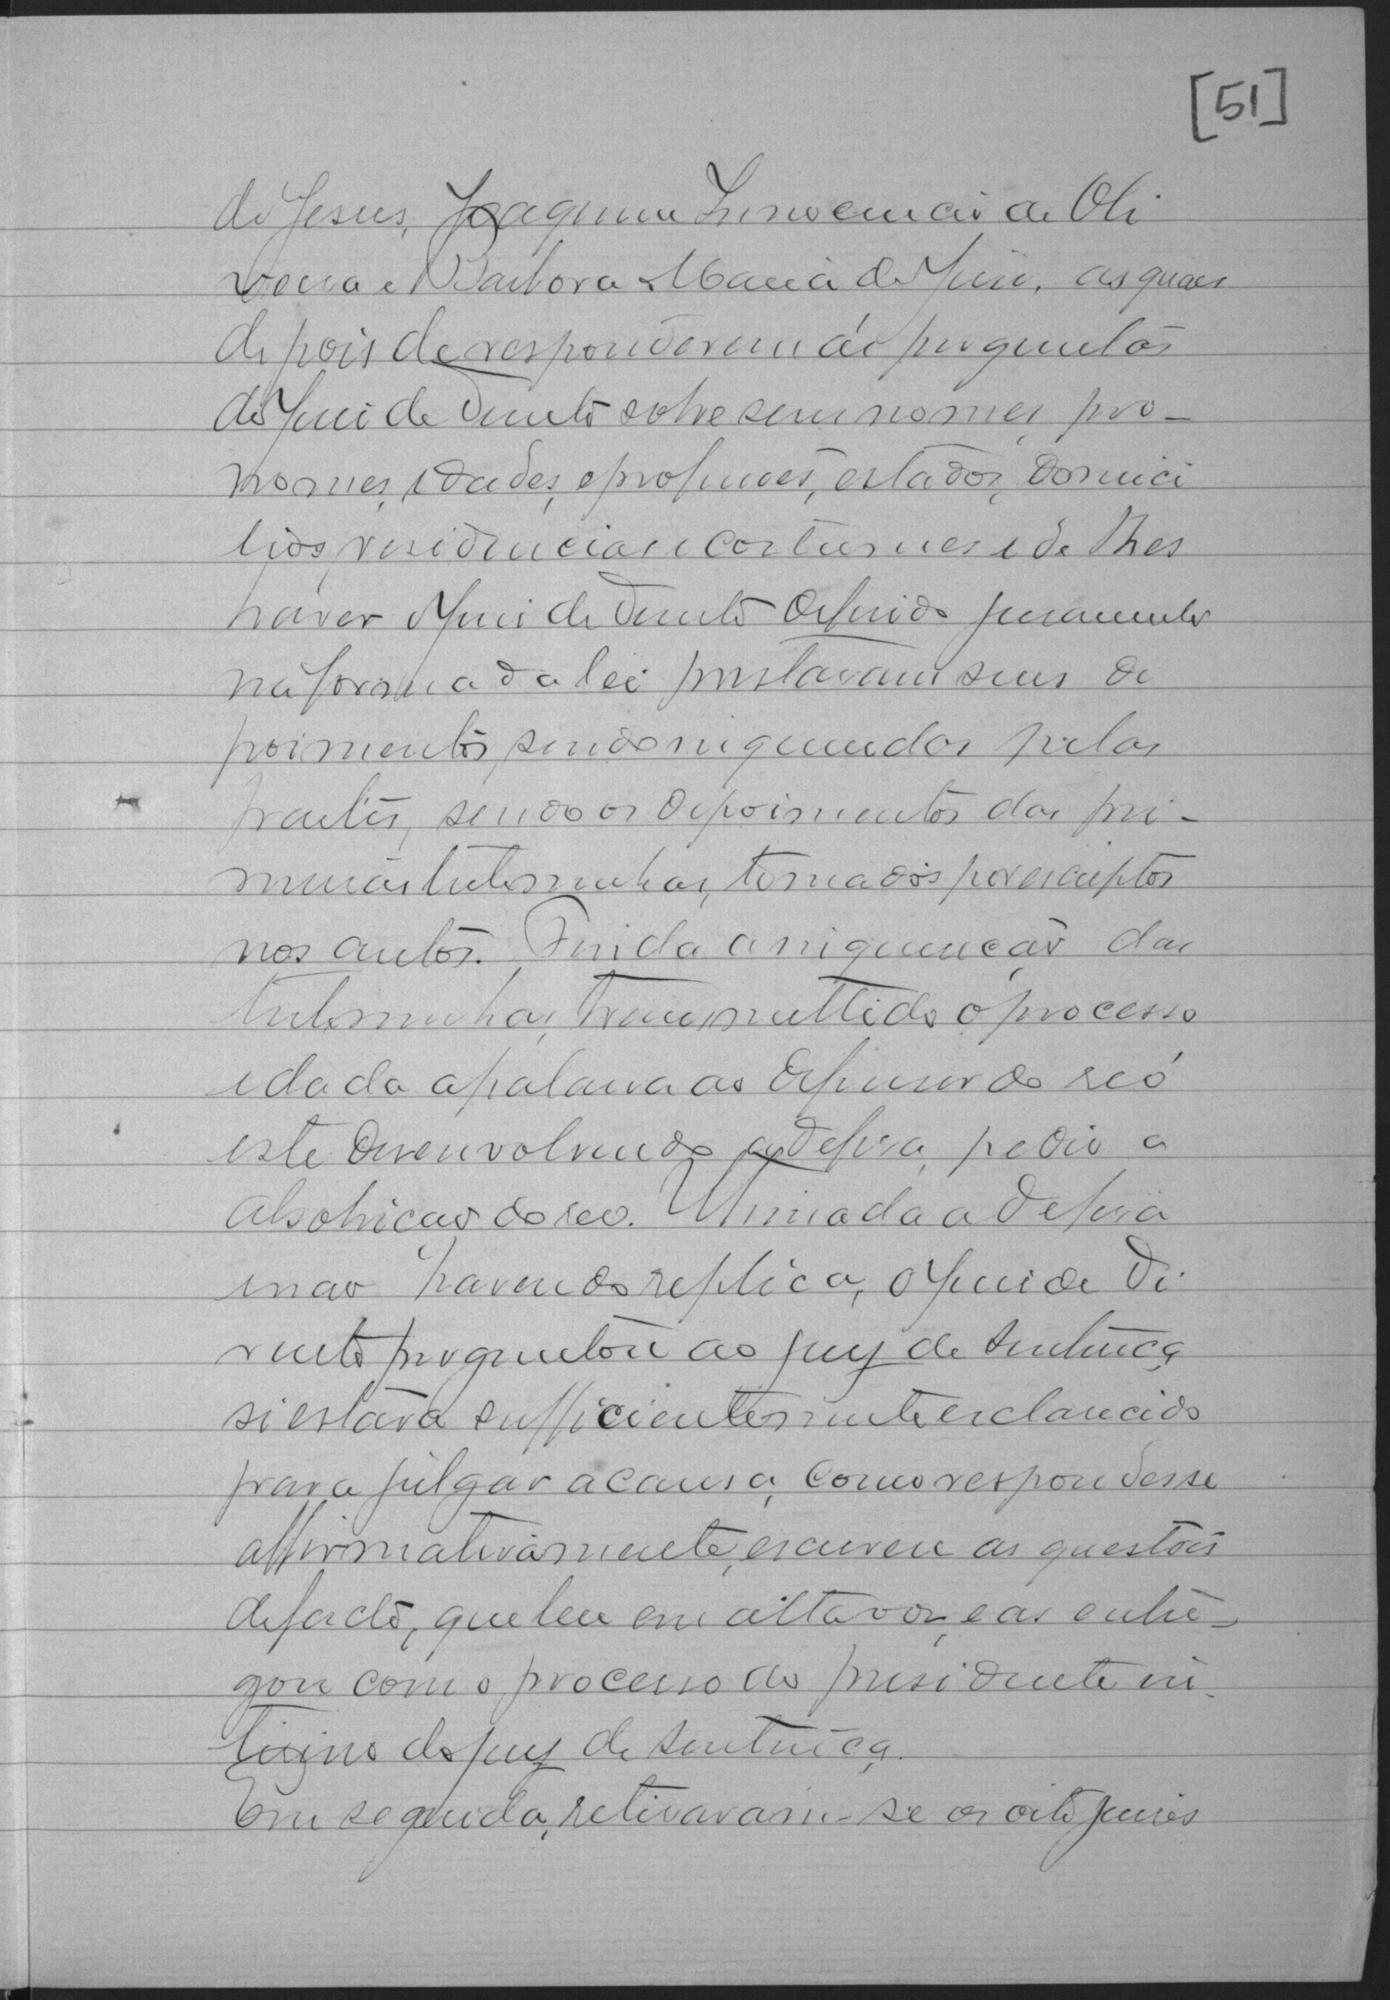 [51]
de Jesus, Joaquim Innocencio de Oli
veira e Barbora Maria de Jesus, as quaes
depois de responderem ás perguntas
do Juiz de Direito sobre seus nomes, pro-
nomes, idades, e profissões, estados, domici
lios, residencias e costumes e de lhes
haver o Juiz de Direito deferido juramento
na forma da lei prestaram seus de
poimentos, sendo inqueridas pelas
partes, sendo os depoimentos das pri-
meiras testemunhas, tomados por escriptos
nos autos. Finda a inquirição das
testemunhas, transmettido o processo
e dada a palavra ao defensor do reo
este desenvolvendo a defesa, pedio a
absolvicao do reo. Terminada a defesa
e nao havendo replica, o Juiz de Di
reito perguntou ao jury de sentença
si estava sufficientemente esclarecido
para julgar a causa, como respondesse
affirmativamente, escreveu as questões
de facto, que leu em alta voz, e as entre-
gou com o processo ao presidente in
terino do jury de sentença.
Em seguida, retiraram-se os oito juises